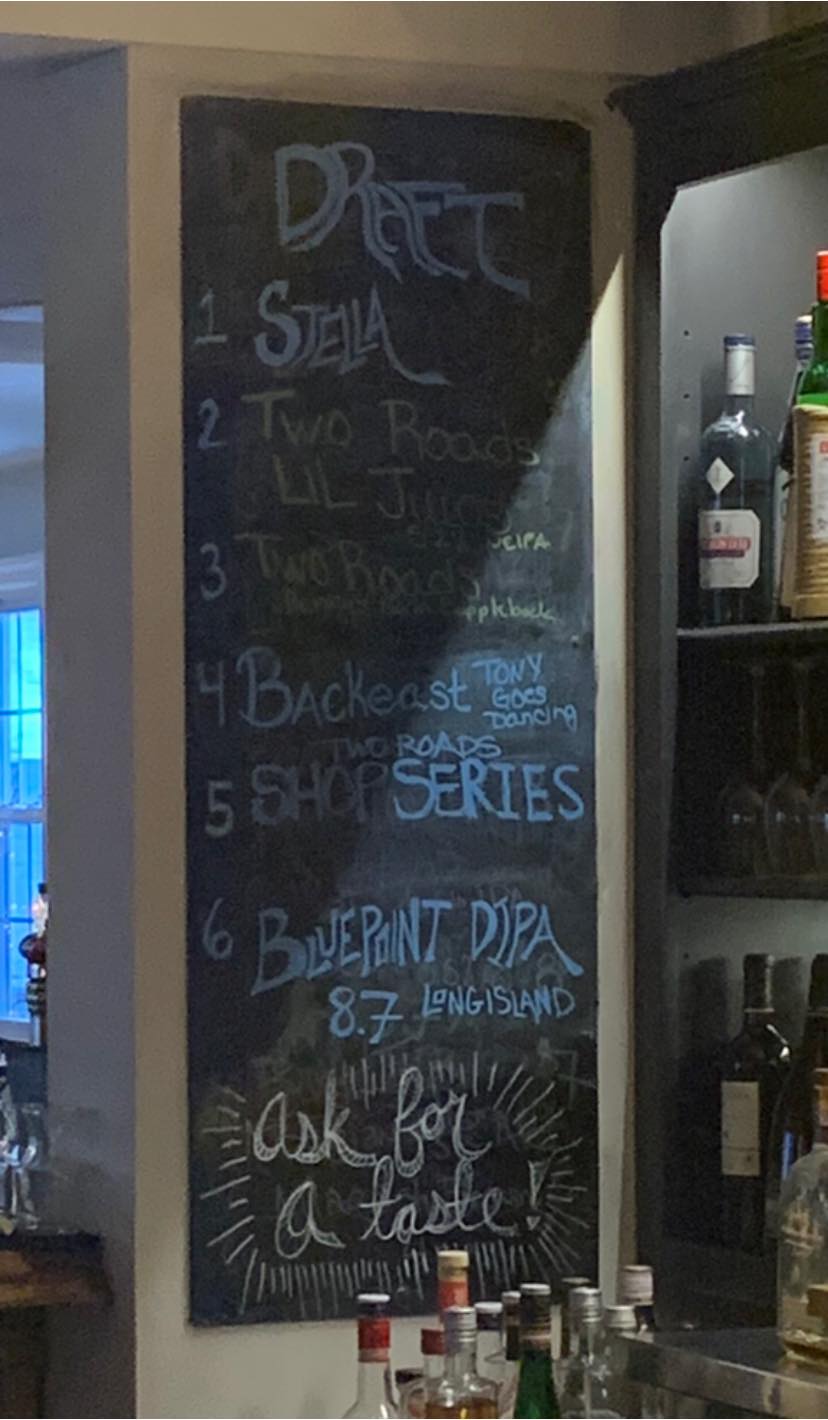 DRAFT
1 STELLA
2 Two Roads
LIL Juicy
NEIPA
3 Two Roads
4 Backeast TONY
Goes
Dancing
TWO ROADS
5 SHOP SERIES
6 BLUEPOINT DIPA
8.7 LONG ISLAND
ask for
a taste!